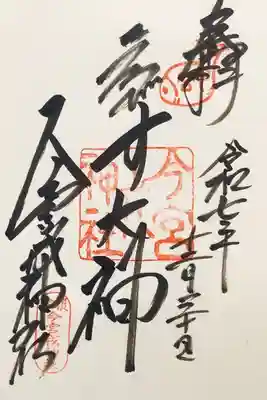 奉拝
令和七年
十二月二十日
す大神
今宮
神社
今宮戎神社